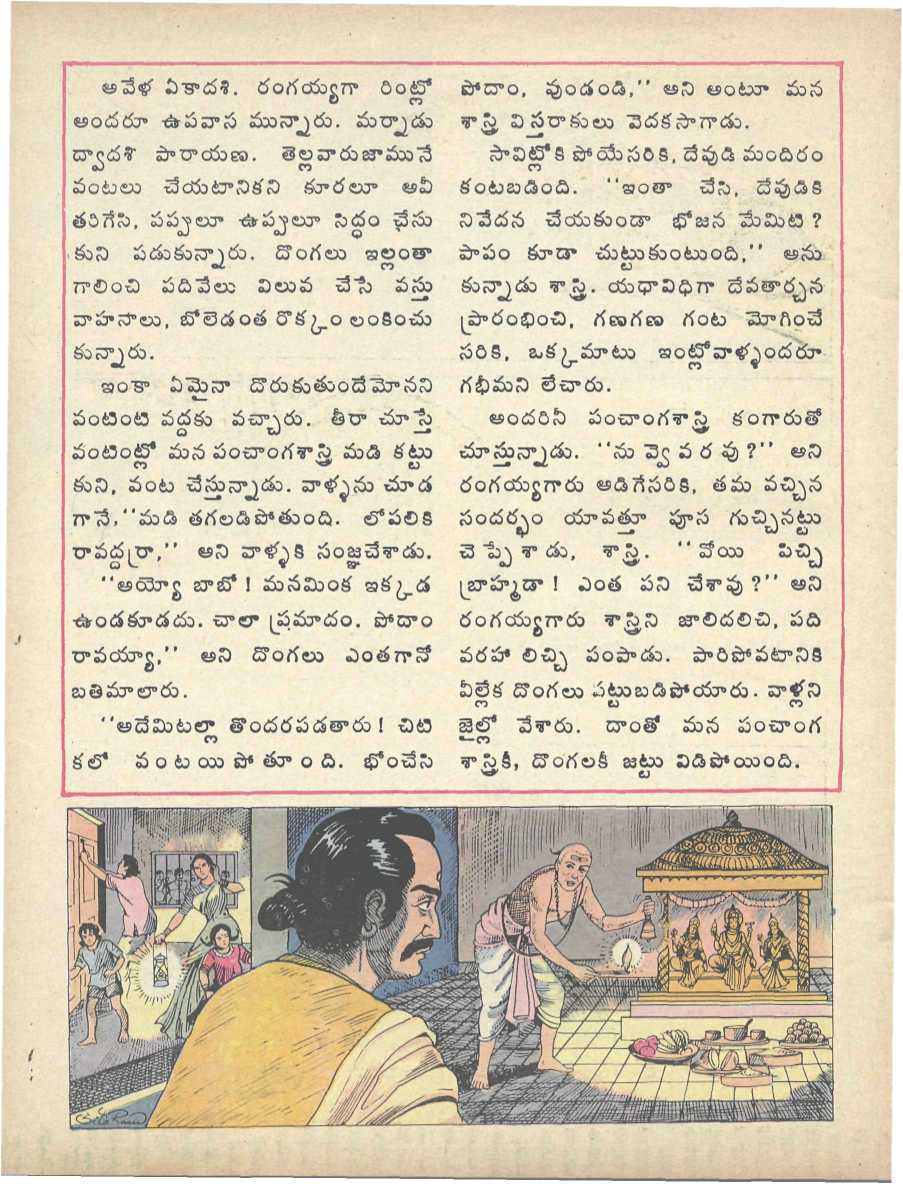 ఆవేళ ఏకాదశి. రంగయ్యగా రింట్లో
అందరూ ఉపవాస మున్నారు. మర్నాడు
ద్వాదశి పారాయణ. తెల్లవారుజామునే
వంటలు చేయటానికని కూరలూ అవీ
తరిగేసి, పప్పులూ ఉప్పులూ సిద్ధం చేసు
కుని పడుకున్నారు. దొంగలు ఇల్లంతా
గాలించి పదివేలు విలువ చేసే వస్తు
వాహనాలు, బోలెడంత రొక్కం లంకించు
కున్నారు.
ఇంకా ఏమైనా దొరుకుతుందేమోనని
వంటింటి వద్దకు వచ్చారు. తీరా చూస్తే
వంటింట్లో మన పంచాంగశాస్త్రి మడి కట్టు
కుని, వంట చేస్తున్నాడు. వాళ్ళను చూడ
గానే, ‘‘మడి తగలడిపోతుంది. లోపలికి
రావద్దర్రా,’’ అని వాళ్ళకి సంజ్ఞచేశాడు.
‘‘అయ్యో బాబో! మనమింక ఇక్కడ
ఉండకూడదు. చాలా ప్రమాదం. పోదాం
రావయ్యా,’’ అని దొంగలు ఎంతగానో
బతిమాలారు.
‘‘అదేమిటల్లా తొందరపడతారు! చిటి
కలో వంటయిపోతూంది. భోంచేసి
పోదాం, వుండండి,’’ అని అంటూ మన
శాస్త్రి విస్తరాకులు వెదకసాగాడు.
సావిట్లోకి పోయేసరికి, దేవుడి మందిరం
కంటబడింది. ‘‘ఇంతా చేసి, దేవుడికి
నివేదన చేయకుండా భోజన మేమిటి?
పాపం కూడా చుట్టుకుంటుంది,’’ అను
కున్నాడు శాస్త్రి. యధావిధిగా దేవతార్చన
ప్రారంభించి, గణగణ గంట మోగించే
సరికి, ఒక్కమాటు ఇంట్లోవాళ్ళందరూ
గభీమని లేచారు.
అందరినీ పంచాంగశాస్త్రి కంగారుతో
చూస్తున్నాడు. ‘‘నువ్వెవరవు?’’ అని
రంగయ్యగారు అడిగేసరికి, తమ వచ్చిన
సందర్భం యావత్తూ పూస గుచ్చినట్టు
చెప్పేశాడు, శాస్త్రి. ‘‘వోయి పిచ్చి
బ్రాహ్మడా! ఎంత పని చేశావు?’’ అని
రంగయ్యగారు శాస్త్రిని జాలిదలిచి, పది
వరహా లిచ్చి పంపాడు. పారిపోవటానికి
వీల్లేక దొంగలు పట్టుబడిపోయారు. వాళ్లని
జైల్లో వేశారు. దాంతో మన పంచాంగ
శాస్త్రికీ, దొంగలకీ జట్టు విడిపోయింది.